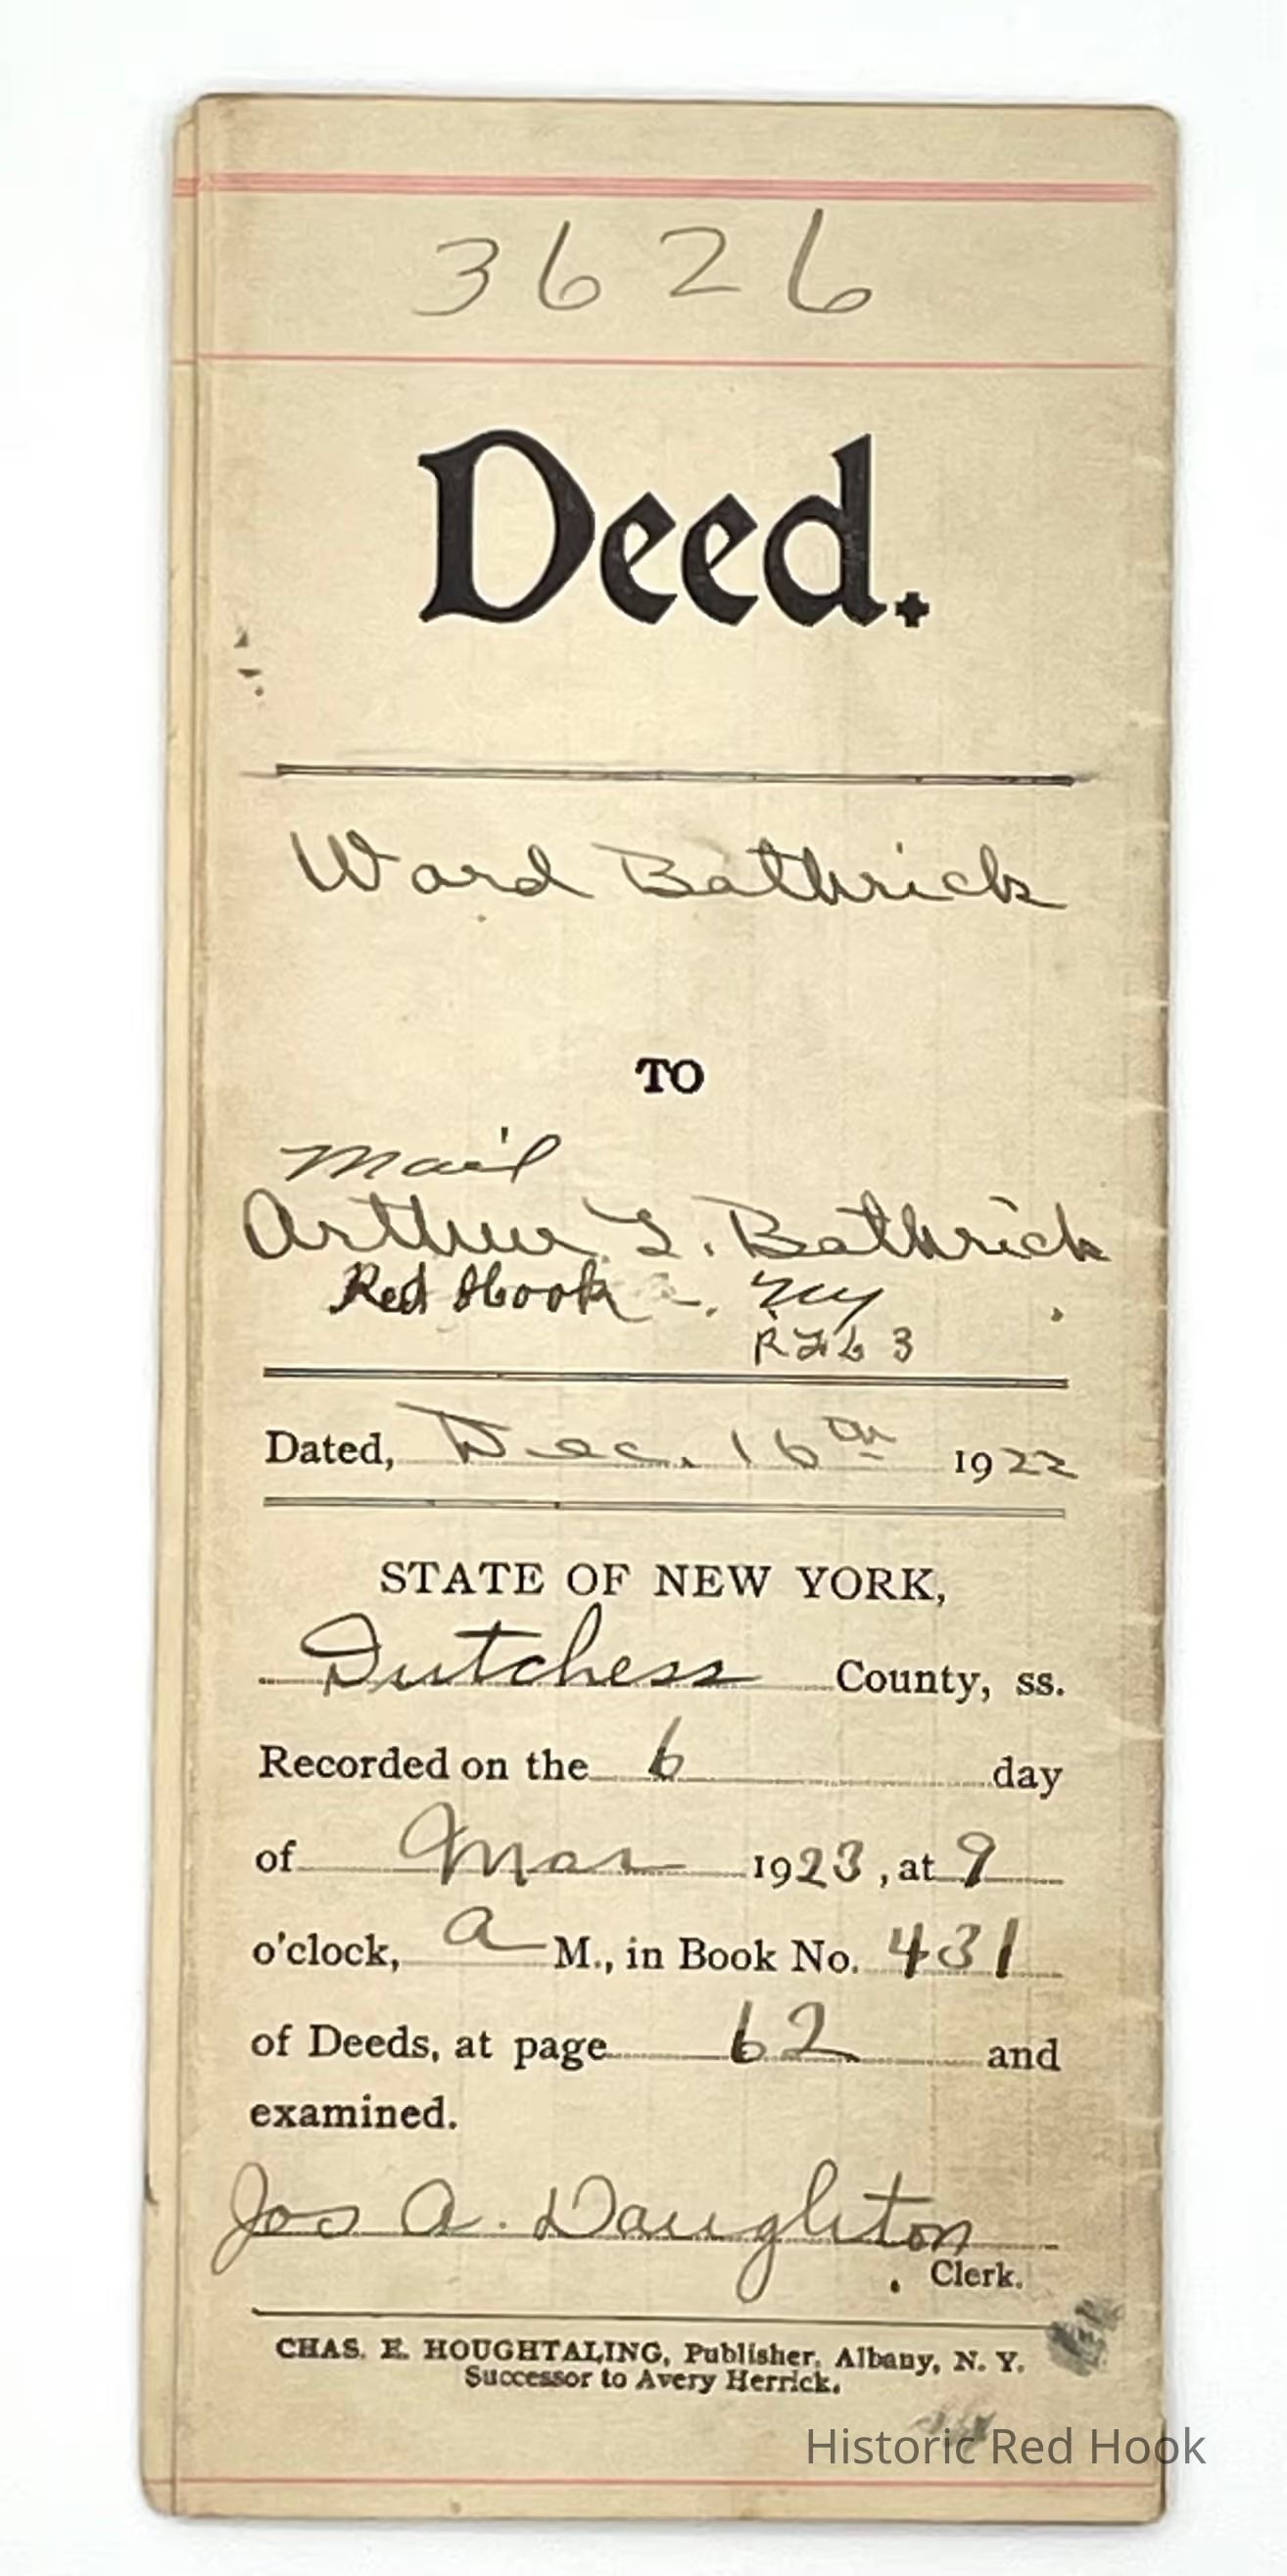 3626
Deed.
Ward Bathrick
TO
Mail
Arthur L. Bathrick
Red Hook, NY
3
Dated, Dec. 16th 1922
STATE OF NEW YORK,
Dutchess County, ss.
Recorded on the 6 day
of Mar 1923, at 9
o'clock, a M., in Book No. 431
of Deeds, at page 62 and
examined.
Jos A. Daughton
Clerk.
CHAS. E. HOUGHTALING, Publisher, Albany, N. Y.
Successor to Avery Herrick.
Historic Red Hook